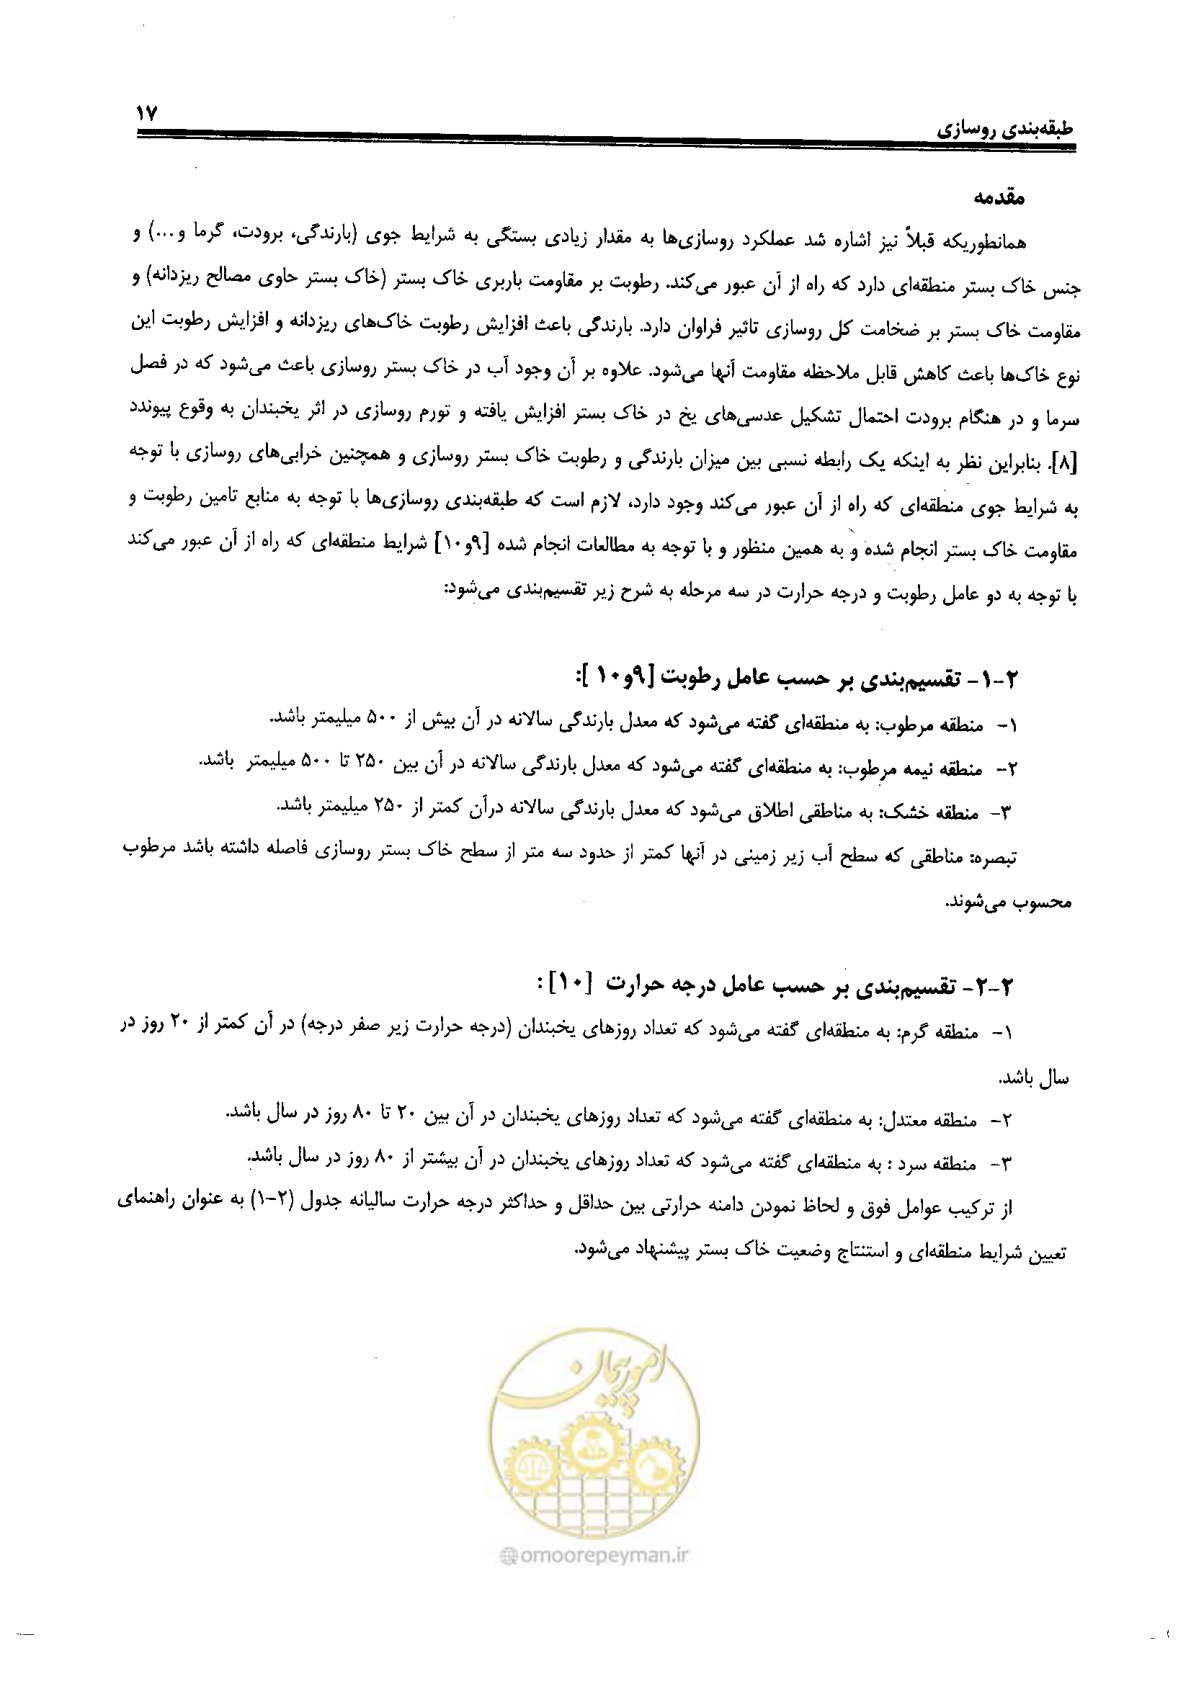 طبقه‌بندی روسازی
۱۷
مقدمه
همانطوریکه قبلاً نیز اشاره شد عملکرد روسازی‌ها به مقدار زیادی بستگی به شرایط جوی (بارندگی، برودت، گرما و...) و
جنس خاک بستر منطقه‌ای دارد که راه از آن عبور می‌کند. رطوبت بر مقاومت باربری خاک بستر (خاک بستر حاوی مصالح ریزدانه) و
مقاومت خاک بستر بر ضخامت کل روسازی تاثیر فراوان دارد. بارندگی باعث افزایش رطوبت خاک‌های ریزدانه و افزایش رطوبت این
نوع خاک‌ها باعث کاهش قابل ملاحظه مقاومت آنها می‌شود. علاوه بر آن وجود آب در خاک بستر روسازی باعث می‌شود که در فصل
سرما و در هنگام برودت احتمال تشکیل عدسی‌های یخ در خاک بستر افزایش یافته و تورم روسازی در اثر یخبندان به وقوع پیوندد
[۸]. بنابراین نظر به اینکه یک رابطه نسبی بین میزان بارندگی و رطوبت خاک بستر روسازی و همچنین خرابی‌های روسازی با توجه
به شرایط جوی منطقه‌ای که راه از آن عبور می‌کند وجود دارد، لازم است که طبقه‌بندی روسازی‌ها با توجه به منابع تامین رطوبت و
مقاومت خاک بستر انجام شده و به همین منظور و با توجه به مطالعات انجام شده [۹و۱۰] شرایط منطقه‌ای که راه از آن عبور می‌کند
با توجه به دو عامل رطوبت و درجه حرارت در سه مرحله به شرح زیر تقسیم‌بندی می‌شود:
۲-۱- تقسیم‌بندی بر حسب عامل رطوبت [۹و۱۰ ]:
۱- منطقه مرطوب: به منطقه‌ای گفته می‌شود که معدل بارندگی سالانه در آن بیش از ۵۰۰ میلیمتر باشد.
۲- منطقه نیمه مرطوب: به منطقه‌ای گفته می‌شود که معدل بارندگی سالانه در آن بین ۲۵۰ تا ۵۰۰ میلیمتر باشد.
۳- منطقه خشک: به مناطقی اطلاق می‌شود که معدل بارندگی سالانه درآن کمتر از ۲۵۰ میلیمتر باشد.
تبصره: مناطقی که سطح آب زیر زمینی در آنها کمتر از حدود سه متر از سطح خاک بستر روسازی فاصله داشته باشد مرطوب
محسوب می‌شوند.
۲-۲- تقسیم‌بندی بر حسب عامل درجه حرارت [۱۰]:
۱- منطقه گرم: به منطقه‌ای گفته می‌شود که تعداد روزهای یخبندان (درجه حرارت زیر صفر درجه) در آن کمتر از ۲۰ روز در
سال باشد.
۲- منطقه معتدل: به منطقه‌ای گفته می‌شود که تعداد روزهای یخبندان در آن بین ۲۰ تا ۸۰ روز در سال باشد.
۳- منطقه سرد : به منطقه‌ای گفته می‌شود که تعداد روزهای یخبندان در آن بیشتر از ۸۰ روز در سال باشد.
از ترکیب عوامل فوق و لحاظ نمودن دامنه حرارتی بین حداقل و حداکثر درجه حرارت سالیانه جدول (۲-۱) به عنوان راهنمای
تعیین شرایط منطقه‌ای و استنتاج وضعیت خاک بستر پیشنهاد می‌شود.
امور پیمان
omoorepeyman.ir